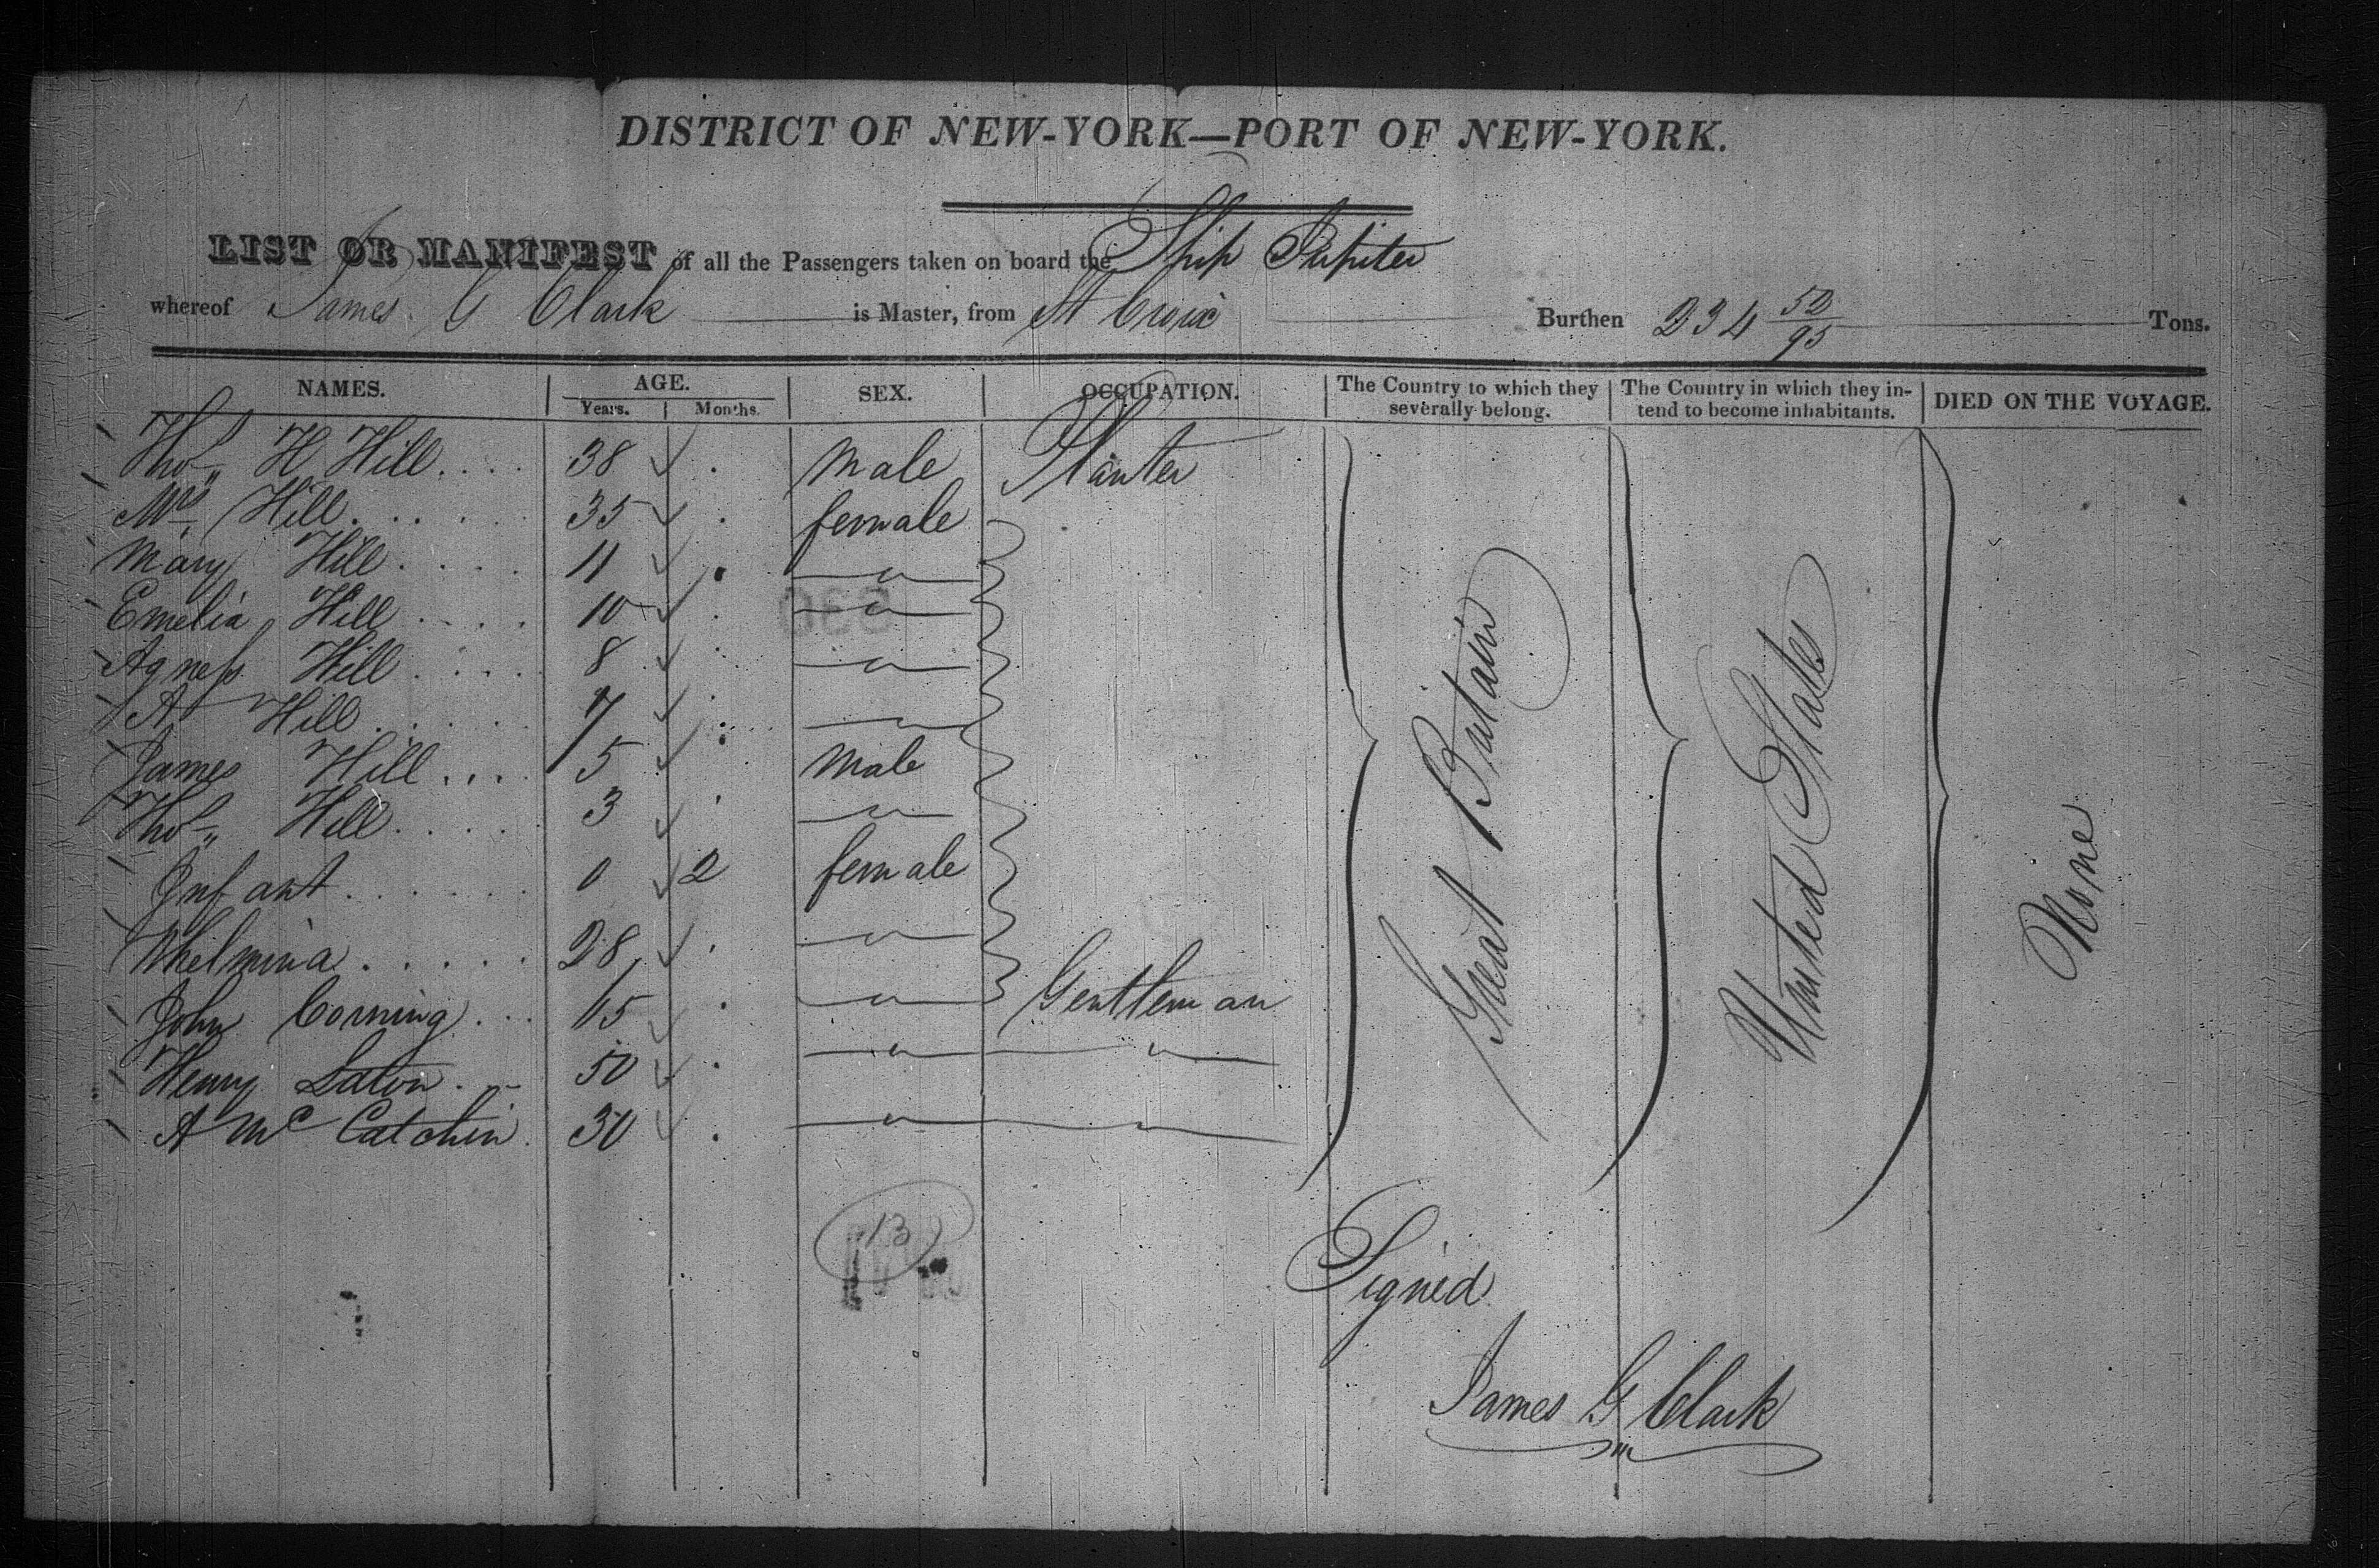 DISTRICT OF NEW-YORK—PORT OF NEW-YORK.
LIST OR MANIFEST of all the Passengers taken on board the Ship Jupiter
whereof James G Clark is Master, from St Croix Burthen 234 52/95 Tons.
NAMES. AGE. SEX. OCCUPATION. The Country to which they severally belong. The Country in which they intend to become inhabitants. DIED ON THE VOYAGE.
Years. Months.
Thos H Hill 38 Male Planter
Mrs Hill 35 female
Mary Hill 11 "
Emelia Hill 10 "
Agness Hill 8 "
A Hill 7 "
James Hill 5 Male
Thos Hill 3 "
Infant 0 2 female
Whelmina 28 "
John Corning 65 " Gentleman
Henry 50 " "
A Mc Catchin 30 " "
Great Britain
United States
None
13
Signed
James G Clark